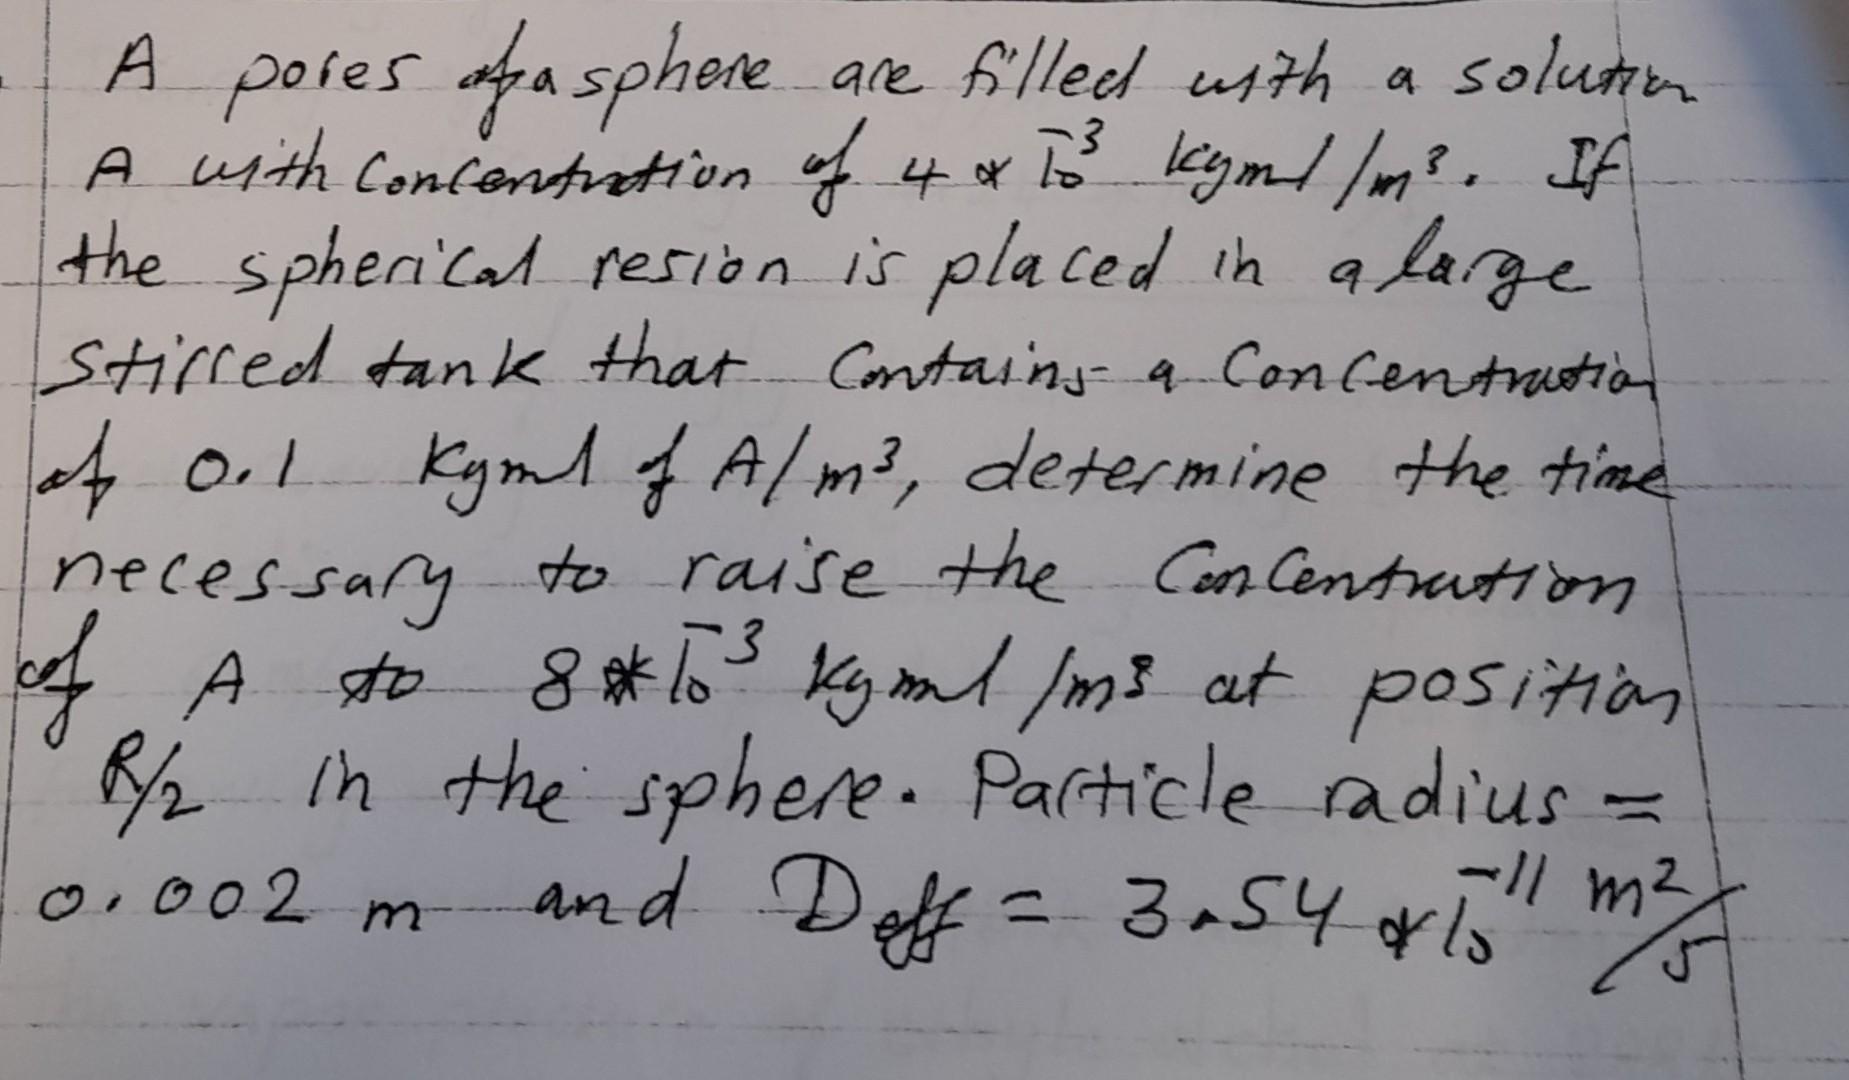 A pores of a sphere are filled with a solution
A with concentration of 4 * 10⁻³ kgmol/m³. If
the spherical resion is placed in a large
stirred tank that contains a concentration
of 0.1 kgmol of A/m³, determine the time
necessary to raise the concentration
of A to 8*10⁻³ kgmol/m³ at position
R/2 in the sphere. Particle radius =
0.002 m and Deff = 3.54 * 10⁻¹¹ m²/s